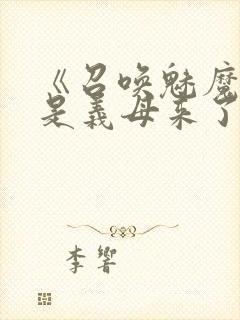 《召唤魅魔
是义母来了
李响